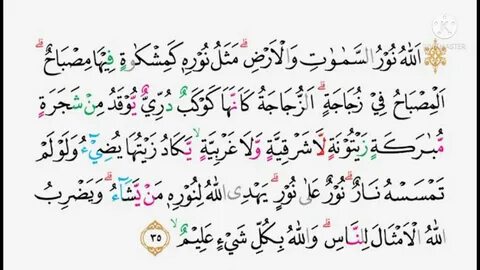 اَللّٰهُ نُوْرُ السَّمٰوٰتِ وَالْاَرْضِۗ مَثَلُ نُوْرِهٖ كَمِشْكٰوةٍ فِيْهَا مِصْبَاحٌۗ
اَلْمِصْبَاحُ فِيْ زُجَاجَةٍۗ اَلزُّجَاجَةُ كَاَنَّهَا كَوْكَبٌ دُرِّيٌّ يُّوْقَدُ مِنْ شَجَرَةٍ
مُّبٰرَكَةٍ زَيْتُوْنَةٍ لَّا شَرْقِيَّةٍ وَّلَا غَرْبِيَّةٍۙ يَّكَادُ زَيْتُهَا يُضِيْۤءُ وَلَوْ لَمْ
تَمْسَسْهُ نَارٌۗ نُوْرٌ عَلٰى نُوْرٍۗ يَهْدِى اللّٰهُ لِنُوْرِهٖ مَنْ يَّشَاۤءُۗ وَيَضْرِبُ
اللّٰهُ الْاَمْثَالَ لِلنَّاسِۗ وَاللّٰهُ بِكُلِّ شَيْءٍ عَلِيْمٌۙ ٣٥